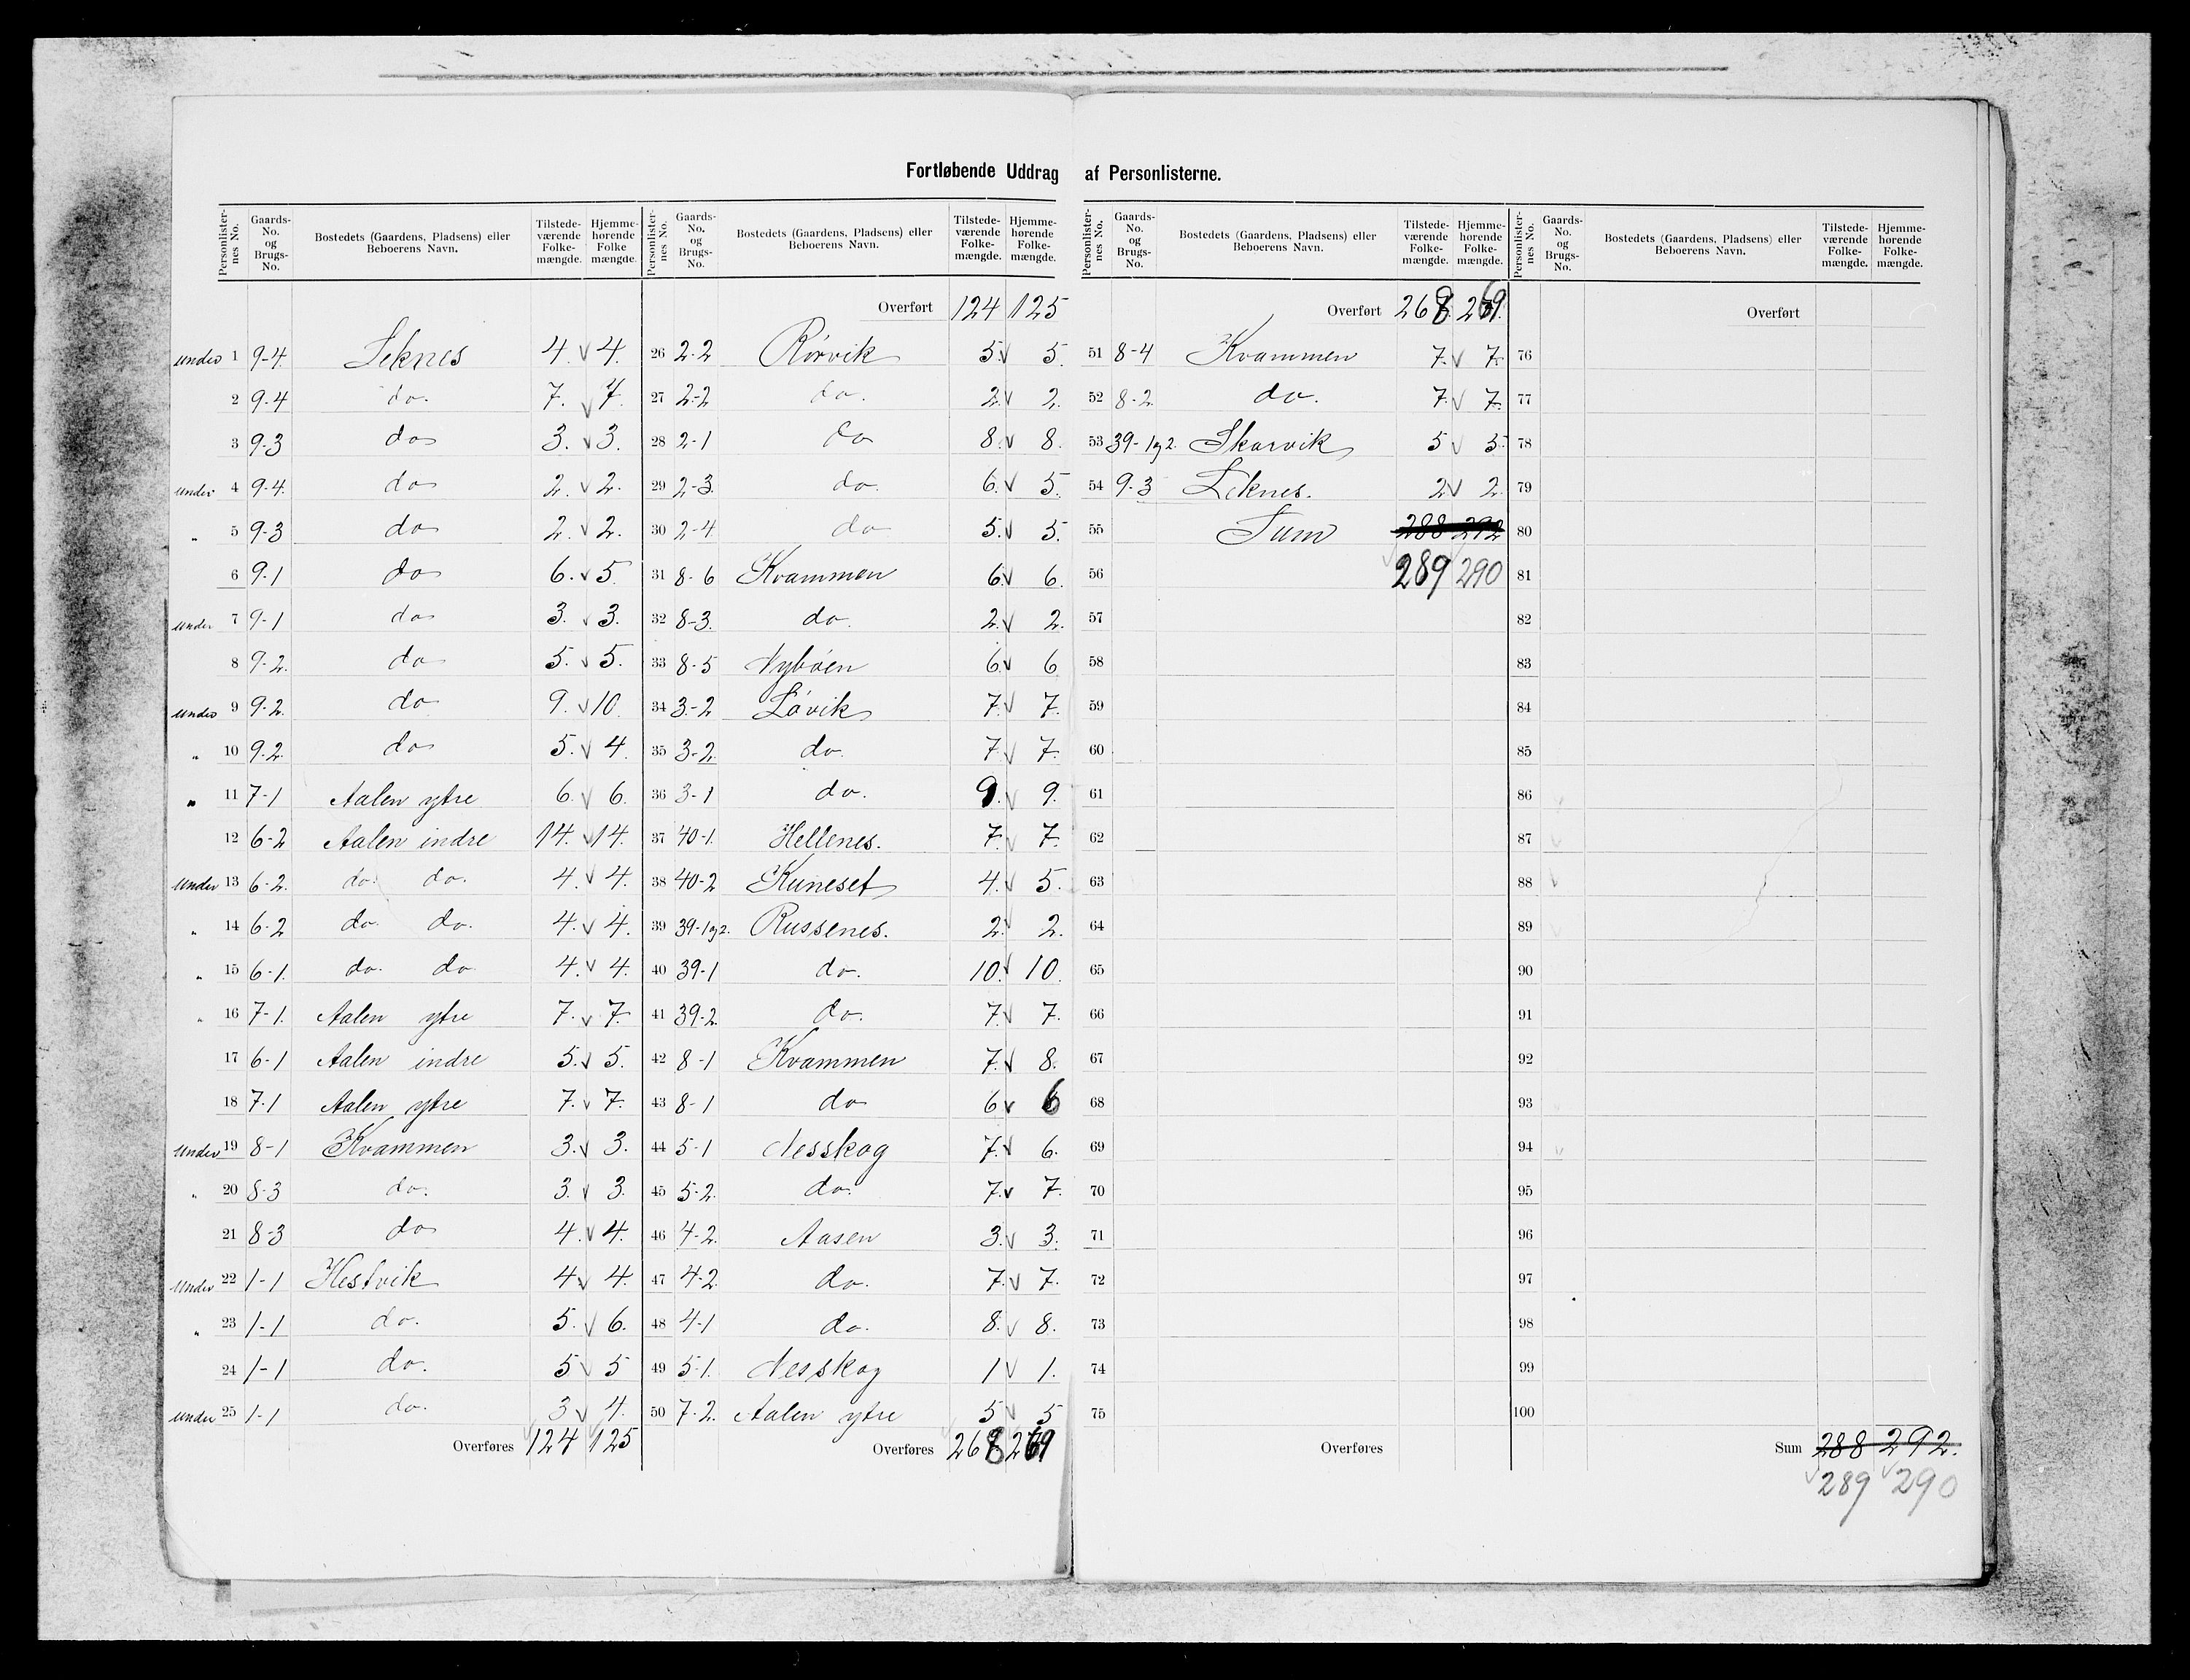 Fortløbende Uddrag af Personlisterne.
Personlister-nes No. Gaards-No. og Brugs-No. Bostedets (Gaardens, Pladsens) eller Beboerens Navn. Tilstede-værende Folke-mængde. Hjemme-hørende Folke mængde.
under 1 9-4. Leknes 4. v 4.
2 9-4 do. 7. v 7.
3 9-3 do 3. v 3.
under 4 9-4. do 2. v 2.
" 5 9-3 do 2. v 2.
6 9-1 do 6. v 5.
under 7 9-1 do 3. v 3.
8 9-2. do 5. v 5.
under 9 9-2. do 9. v 10.
" 10 9-2. do 5. v 4.
" 11 7-1 Aalen ytre 6. v 6.
12 6-2 Aalen indre 14. v 14.
under 13 6-2. do. do. 4. v 4.
" 14 6-2 do. do. 4. v 4.
" 15 6-1. do. do 4. v 4.
" 16 7-1. Aalen ytre 7. v 7.
17 6-1 Aalen indre 5. v 5.
18 7-1 Aalen ytre 7. v 7.
under 19 8-1 Kvammen 3. v 3.
" 20 8-3 do. 3. v 3.
21 8-3 do 4. v 4.
under 22 1-1 Hestvik 4 v 4.
" 23 1-1 do. 5. v 6.
24 1-1 do. 5 v 5
under 25 1-1 do. 3 v 4.
Overføres 124 125
Personlister-nes No. Gaards-No. og Brugs-No. Bostedets (Gaardens, Pladsens) eller Beboerens Navn. Tilstede-værende Folke-mængde. Hjemme-hørende Folke-mængde.
Overført 124 125
26 2-2 Rörvik 5. v 5.
27 2-2 do. 2. v 2.
28 2-1 do 8. v 8.
29 2-3. do. 6. v 5.
30 2-4 do 5. v 5.
31 8-6 Kvammen 6. v 6.
32 8-3. do. 2. v 2.
33 8-5 Nyböen 6. v 6
34 3-2 Lövik 7. v 7.
35 3-2. do. 7. v 7.
36 3-1 do. 9. v 9.
37 40-1. Hellenes. 7. v 7.
38 40-2 Kuneset 4. v 5.
39 39-1og2. Russenes. 2. v 2.
40 39-1 do. 10. v 10.
41 39-2. do. 7. v 7.
42 8-1 Kvammen 7. v 8.
43 8-1 do 6 v 6
44 5-1 Nesskog 7. v 6.
45 5-2. do. 7. v 7.
46 4-2. Aasen 3. v 3.
47 4-2. do. 7. v 7.
48 4-1 do. 8. v 8.
49 5-1. Nesskog 1 v 1.
50 7-2. Aalen ytre 5 v 5
Overføres 268 269
Personlister-nes No. Gaards-No. og Brugs-No. Bostedets (Gaardens, Pladsens) eller Beboerens Navn. Tilstede-værende Folke-mængde. Hjemme-hørende Folke-mængde.
Overført 268 269.
51 8-4 Kvammen 7. v 7.
52 8-2. do. 7. v 7.
53 39-1og2. Skarvik 5 v 5.
54 9-3 Leknes. 2 v 2.
55 Sum 288 292
56 289 290
57
58
59
60
61
62
63
64
65
66
67
68
69
70
71
72
73
74
75
Overføres
Personlister-nes No. Gaards-No. og Brugs-No. Bostedets (Gaardens, Pladsens) eller Beboerens Navn. Tilstede-værende Folke-mængde. Hjemme-hørende Folke-mængde.
Overført
76
77
78
79
80
81
82
83
84
85
86
87
88
89
90
91
92
93
94
95
96
97
98
99
100
Sum 288 292.
289 290